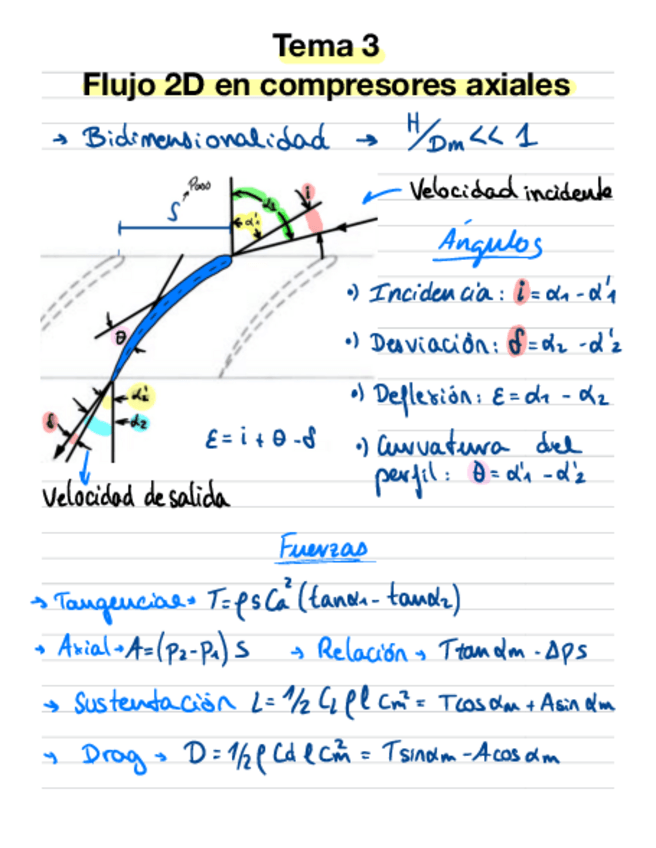 Tema 3
Flujo 2D en compresores axiales
→ Bidimensionalidad → H/Dm << 1
Paso
S
α1
α'1
i
Velocidad incidente
Ángulos
•) Incidencia: i = α1 - α'1
θ
•) Desviación: δ = α2 - α'2
α'2
α2
δ
•) Deflexión: ε = α1 - α2
ε = i + θ - δ
•) Curvatura del
perfil: θ = α'1 - α'2
Velocidad de salida
Fuerzas
→ Tangencial → T = ρ s Ca² (tanα1 - tanα2)
→ Axial → A = (p2 - p1) S → Relación → T tan αm - Δp s
→ Sustentación L = 1/2 CL ρ l Cm² = T cos αm + A sin αm
→ Drag → D = 1/2 ρ Cd l Cm² = T sin αm - A cos αm